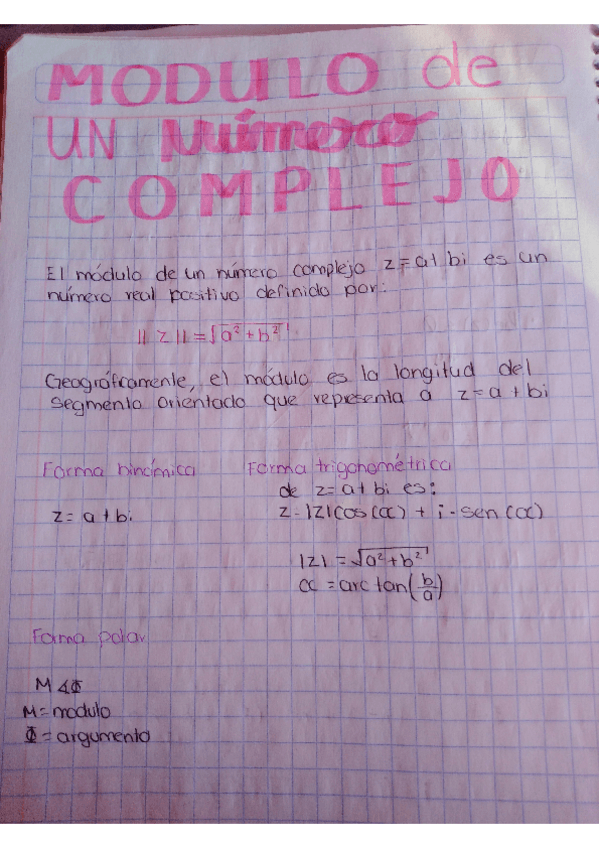 MODULO de
UN Número
COMPLEJO
El módulo de un número complejo z=a+bi es un
número real positivo definido por:
||z||=√a²+b²
Geográficamente, el módulo es la longitud del
segmento orientado que representa a z=a+bi
Forma binómica
z=a+bi
Forma trigonométrica
de z=a+bi es:
z=|z|cos(α)+i·sen(α)
|z|=√a²+b²
α=arc tan(b/a)
Forma polar
M∡Φ
M=modulo
Φ=argumento